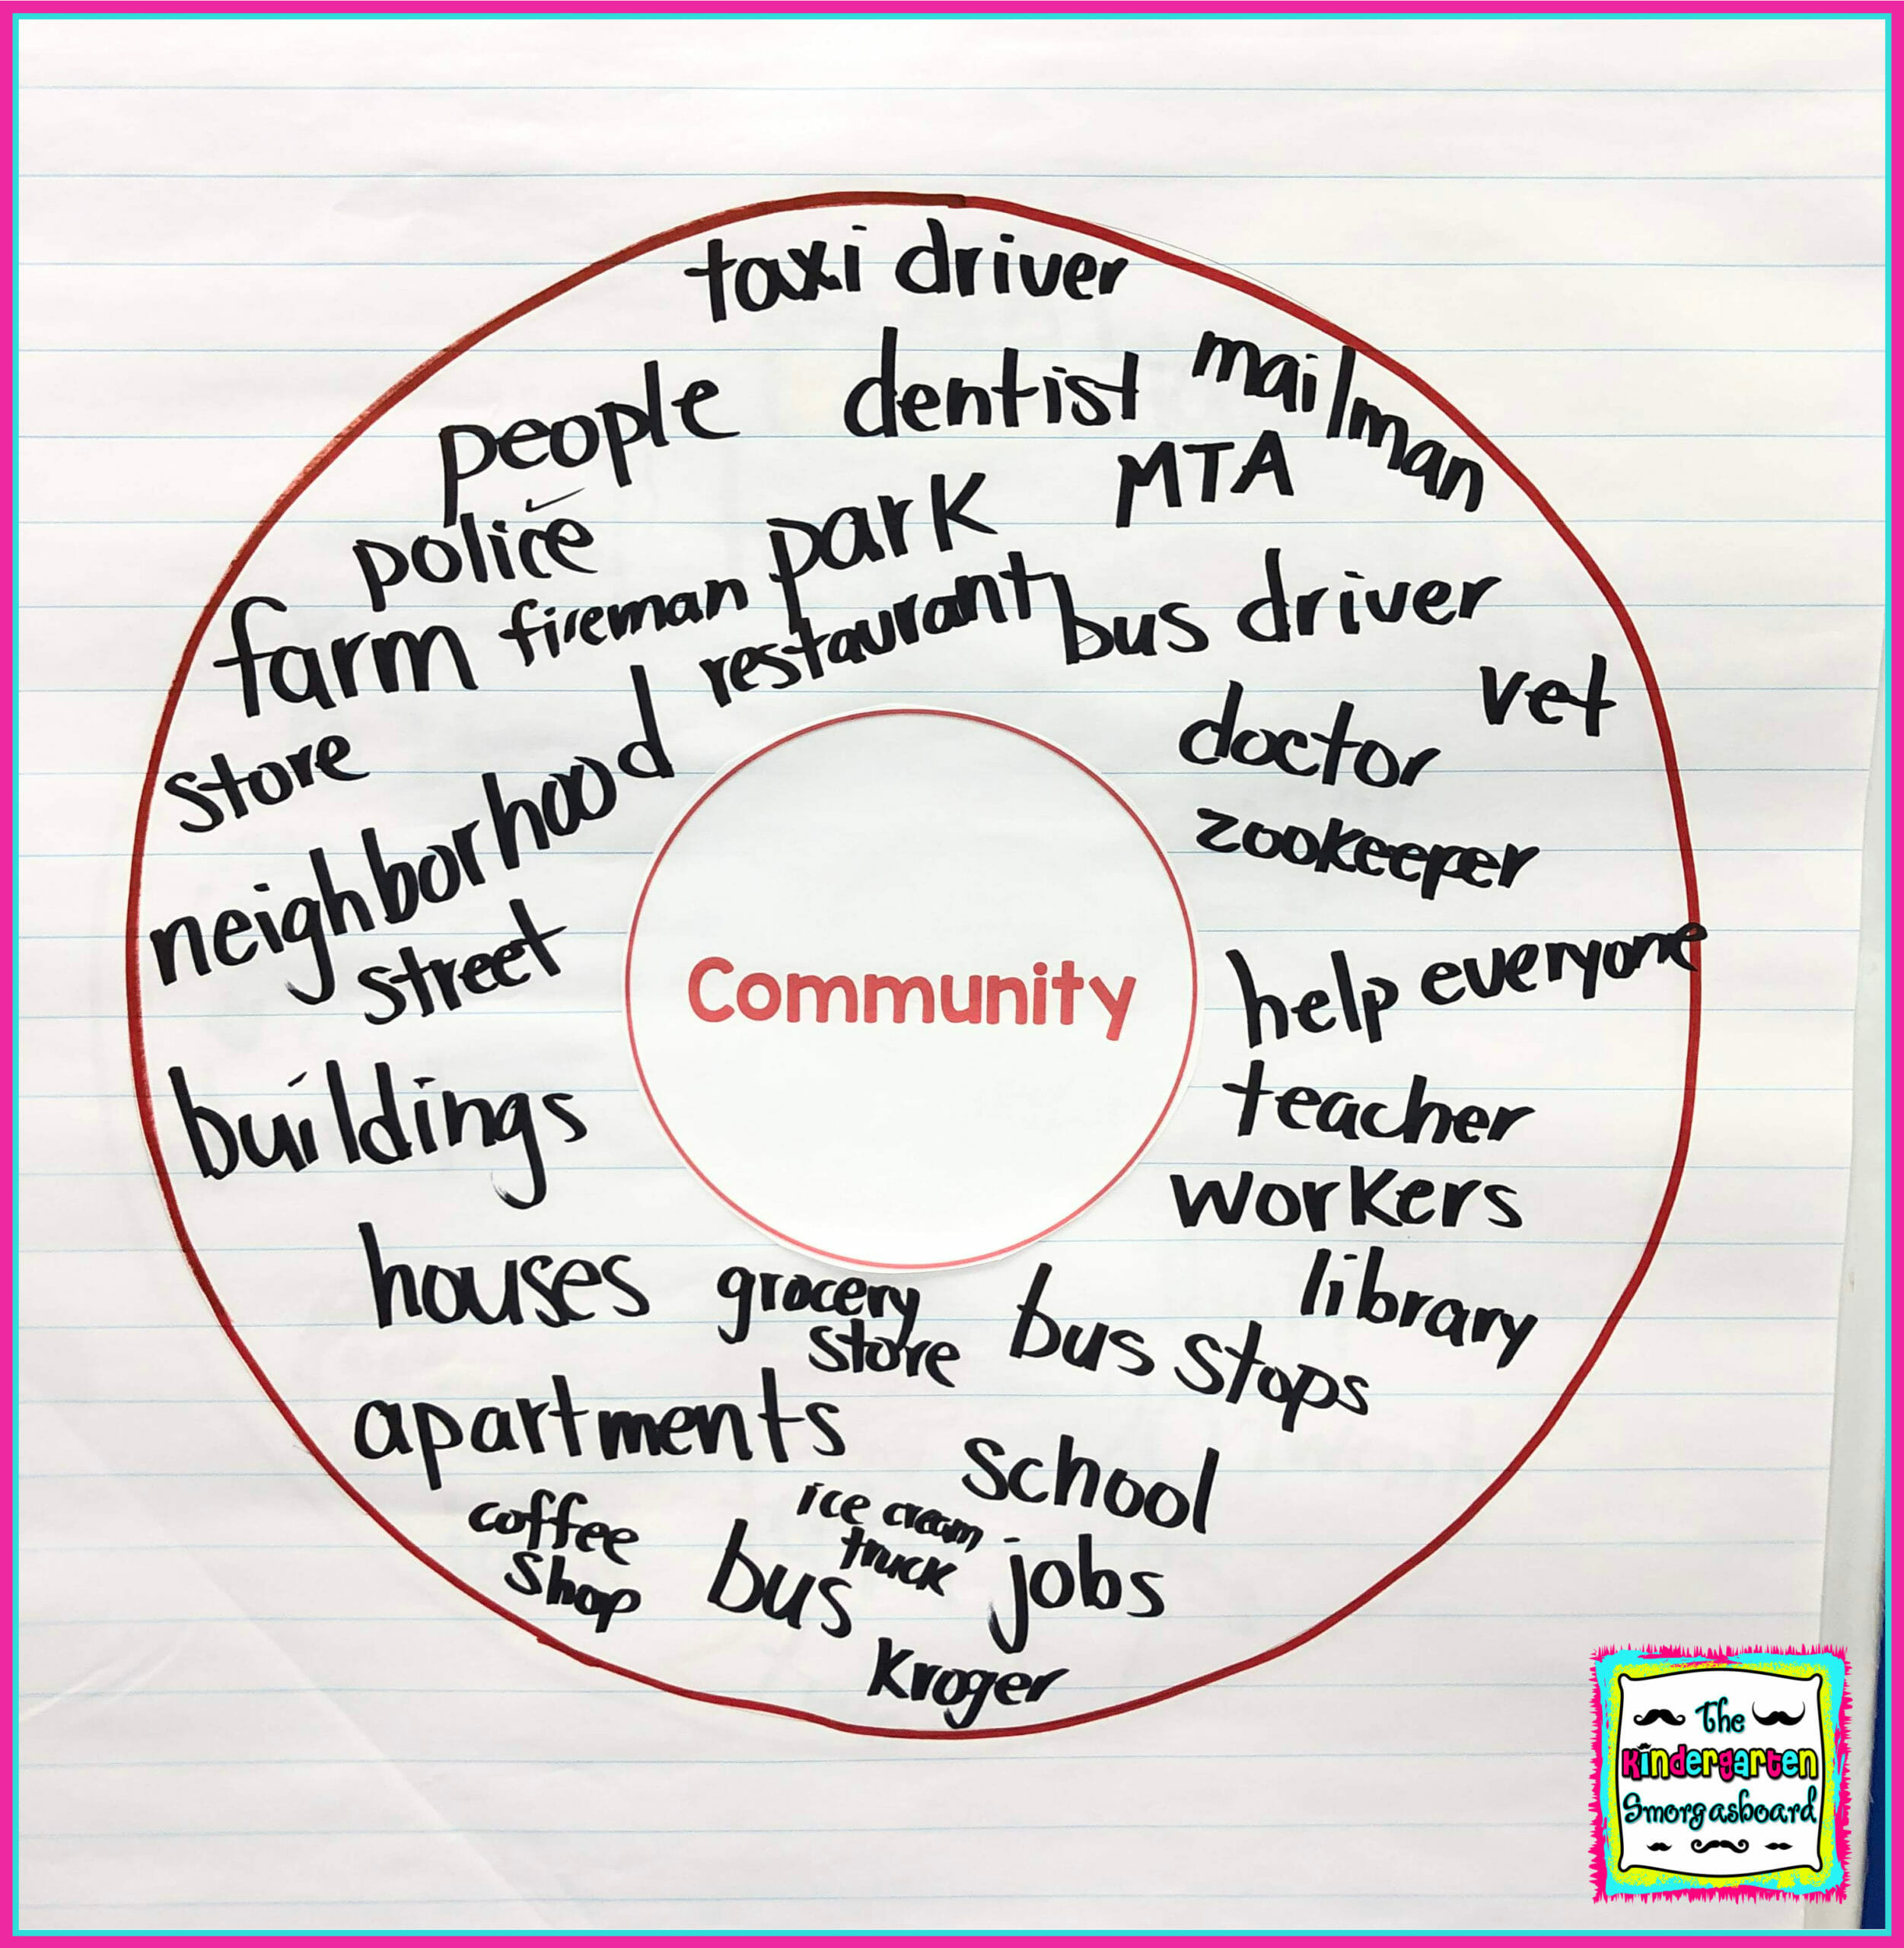 taxi driver
people
dentist
mailman
MTA
police
park
farm
fireman
restaurant
bus driver
vet
store
neighborhood
doctor
zookeeper
street
Community
help everyone
buildings
teacher
workers
houses
grocery
store
bus stops
library
apartments
school
coffee
shop
ice cream
truck
bus
jobs
kroger
The
Kindergarten
Smorgasboard